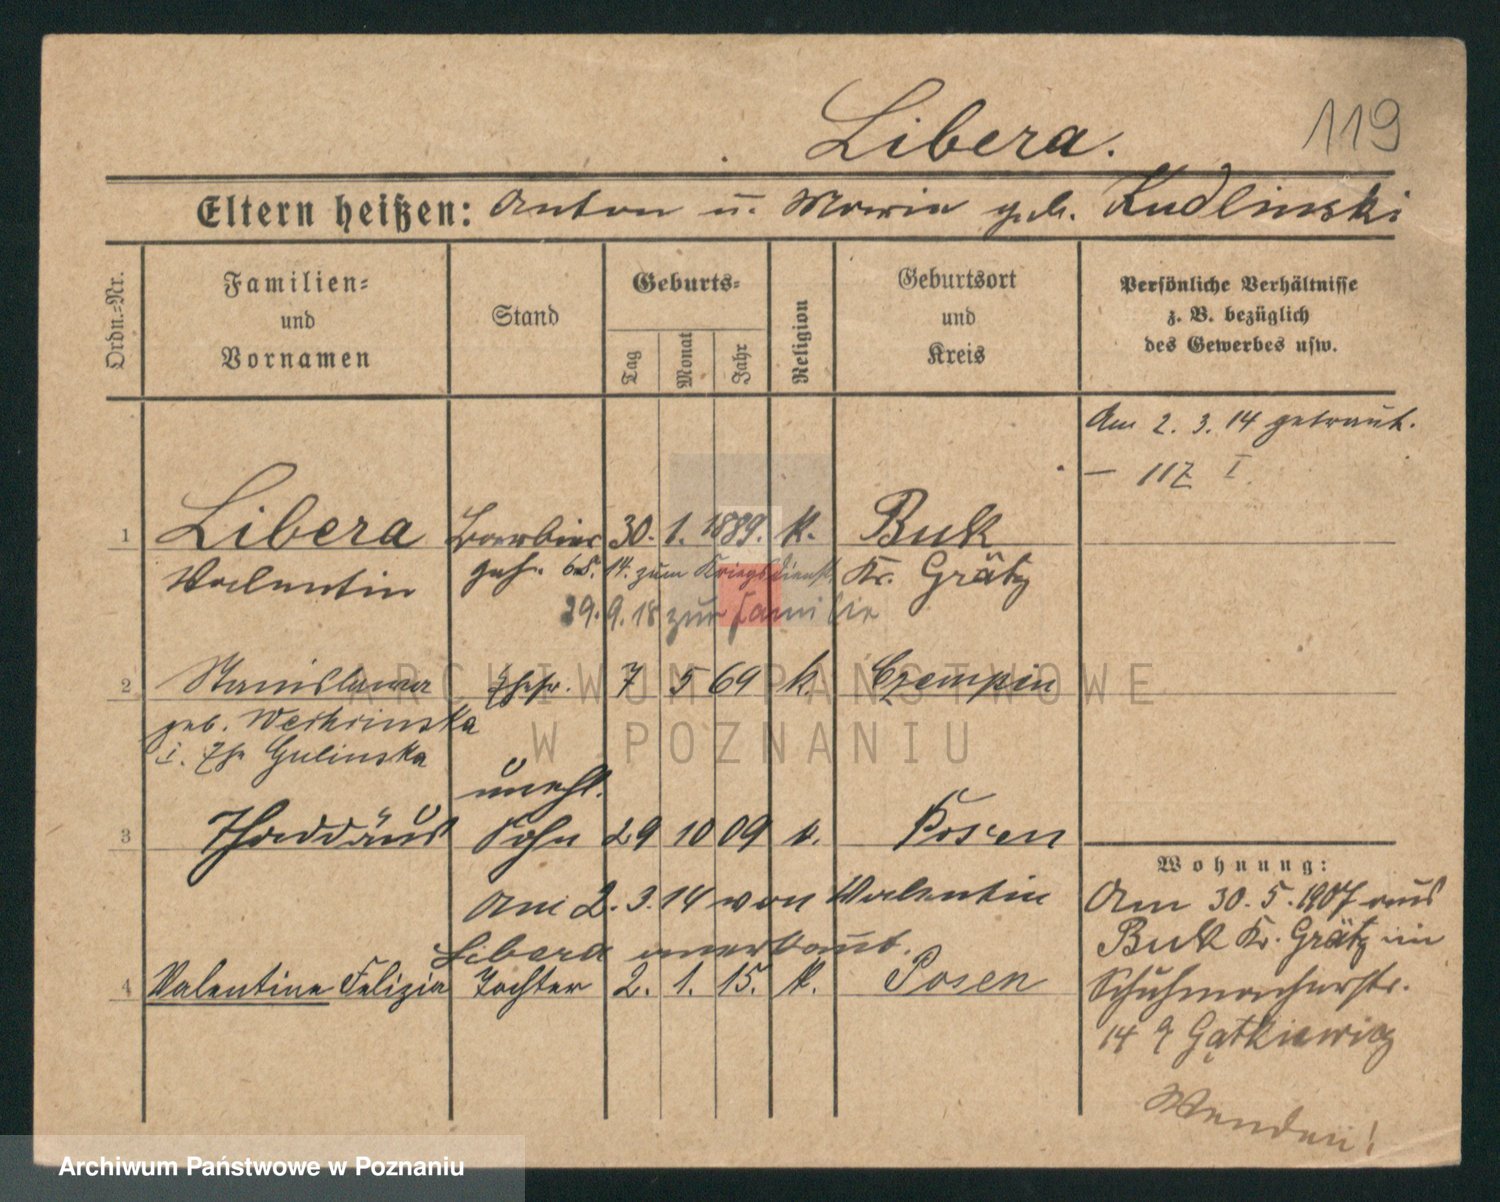 119
Libera.
Eltern heißen: Anton u. Maria geb. Kudlinski
Ordn.-Nr.
Familien-
und
Vornamen
Stand
Geburts-
Tag
Monat
Jahr
Religion
Geburtsort
und
Kreis
Persönliche Verhältnisse
z. B. bezüglich
des Gewerbes usw.
Am 2. 3. 14 getraut.
— 117 I.
1 Libera Barbier 30. 1. 1889. k. Buk
Valentin geh. 6.5. 14. zum Kriegsdienst Kr. Grätz
29.9.18 zur Familie
2 Stanislawa Ehefr. 7 5 69 k. Czempin
geb.
i. Ehe Gulinska
unehl.
3 Thaddäus Sohn 29 10 09 k. Posen
Am 2. 3. 14 von Valentin
Libera anerkannt.
4 Valentine Felizia Tochter 2. 1. 15. k. Posen
Wohnung:
Am 30. 5. 1907 aus
Buk Kr. Grätz in
Schuhmacherstr.
14 Gątkiewicz
Wenden!
ARCHIWUM PAŃSTWOWE
W POZNANIU
Archiwum Państwowe w Poznaniu